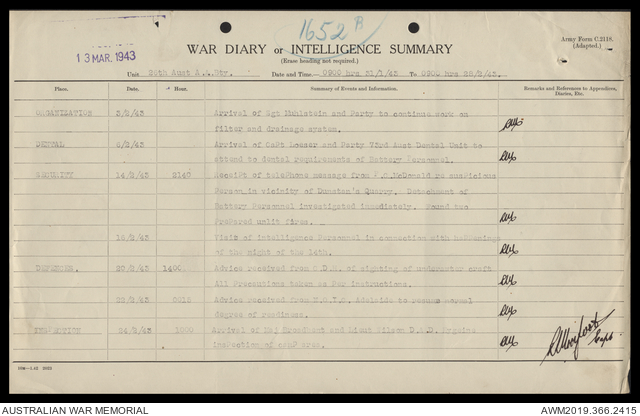 1652B
Army Form C.2118.
(Adapted.)
13 MAR. 1943
WAR DIARY or INTELLIGENCE SUMMARY
(Erase heading not required.)
Unit 26th Aust A.A. Bty. Date and Time 0900 hrs 31/1/43 To 0900 hrs 28/2/43.
Place. Date Hour Summary of Events and Information. Remarks and References to Appendices, Diaries, Etc.
ORGANIZATION 3/2/43 Arrival of Sgt Muhlstein and Party to continue work on
filter and drainage system.
DENTAL 6/2/43 Arrival of Capt Lesser and Party 73rd Aust Dental Unit to
attend to dental requirements of Battery Personnel.
SECURITY 14/2/43 2140 Receipt of telephone message from McDonald re suspicious
Person in vicinity of Dunstan's Quarry. Detachment of
Battery Personnel investigated immediately. Found two
Prepared unlit fires.
18/2/43 Visit of intelligence Personnel in connection with happenings
of the night of the 14th.
DEFENSES. 20/2/43 1400 Advice received from of sighting of underwater craft
All Precautions taken as Per instructions.
22/2/43 Advice received from Adelaide to resume normal
degree of readiness.
INSPECTION 24/2/43 1000 Arrival of Maj and Lieut Wilson
inspection of camp area.
Capt
AUSTRALIAN WAR MEMORIAL
AWM2019.366.2415